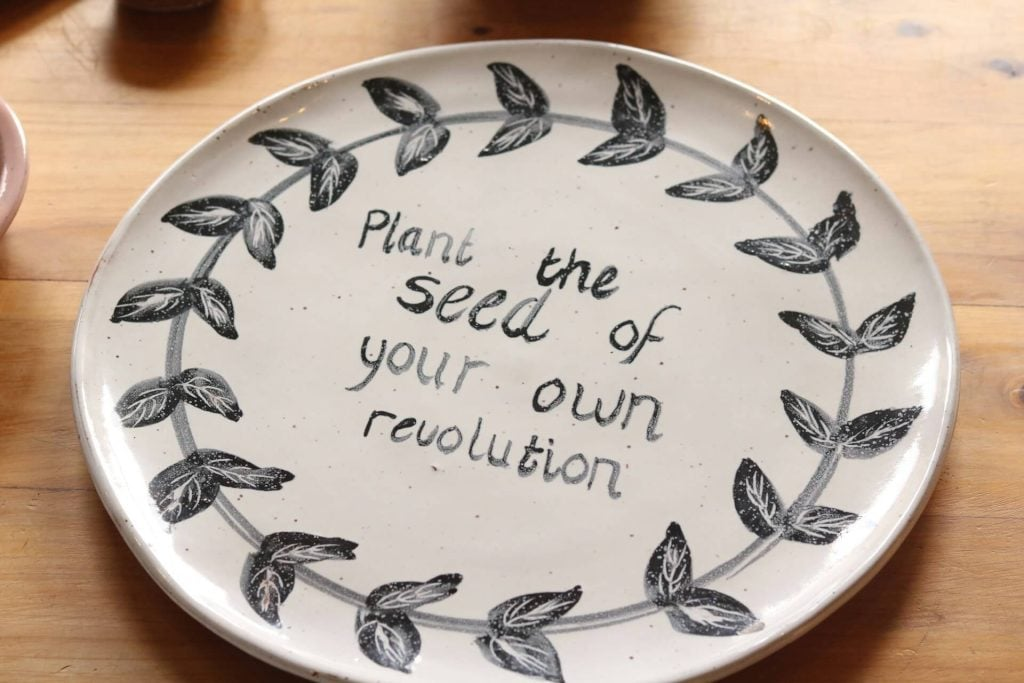 Plant the
seed of
your own
revolution